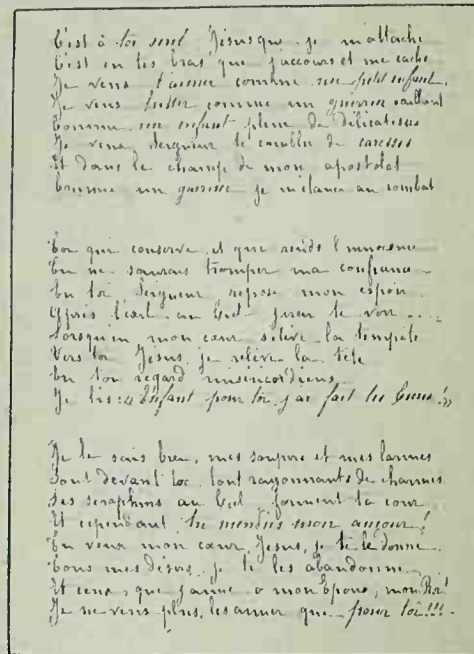 C'est à toi seul Jésus que je m'attache
C'est en tes bras que j'accours et me cache
Je veux t'aimer comme un petit enfant
Je veux lutter comme un guerrier vaillant
Comme un enfant plein de délicatesses
Je veux, Seigneur te combler de caresses
Et dans le champ de mon apostolat
Comme un guerrier je m'élance au combat
Ton qui conserve et que rends l'innocence
Tu ne saurais tromper ma confiance
En toi, Seigneur repose mon espoir
Après l'exil au Ciel j'irai te voir ....
Lorsqu'en mon cœur s'élève la tempête
Vers toi, Jésus, je relève la tête
En ton regard miséricordieux
Je lis : « Enfant pour toi j'ai fait les Cieux ! »
Je le sais bien, mes soupirs et mes larmes
Sont devant toi, tout rayonnants de charmes
Les séraphins au Ciel forment ta cour
Et cependant tu mendies mon amour !
Tu veux mon cœur, Jésus, je te le donne
Tous mes désirs je te les abandonne
Et ceux que j'aime ô mon Epoux, mon Roi
Je ne veux plus les aimer que pour toi !!!.